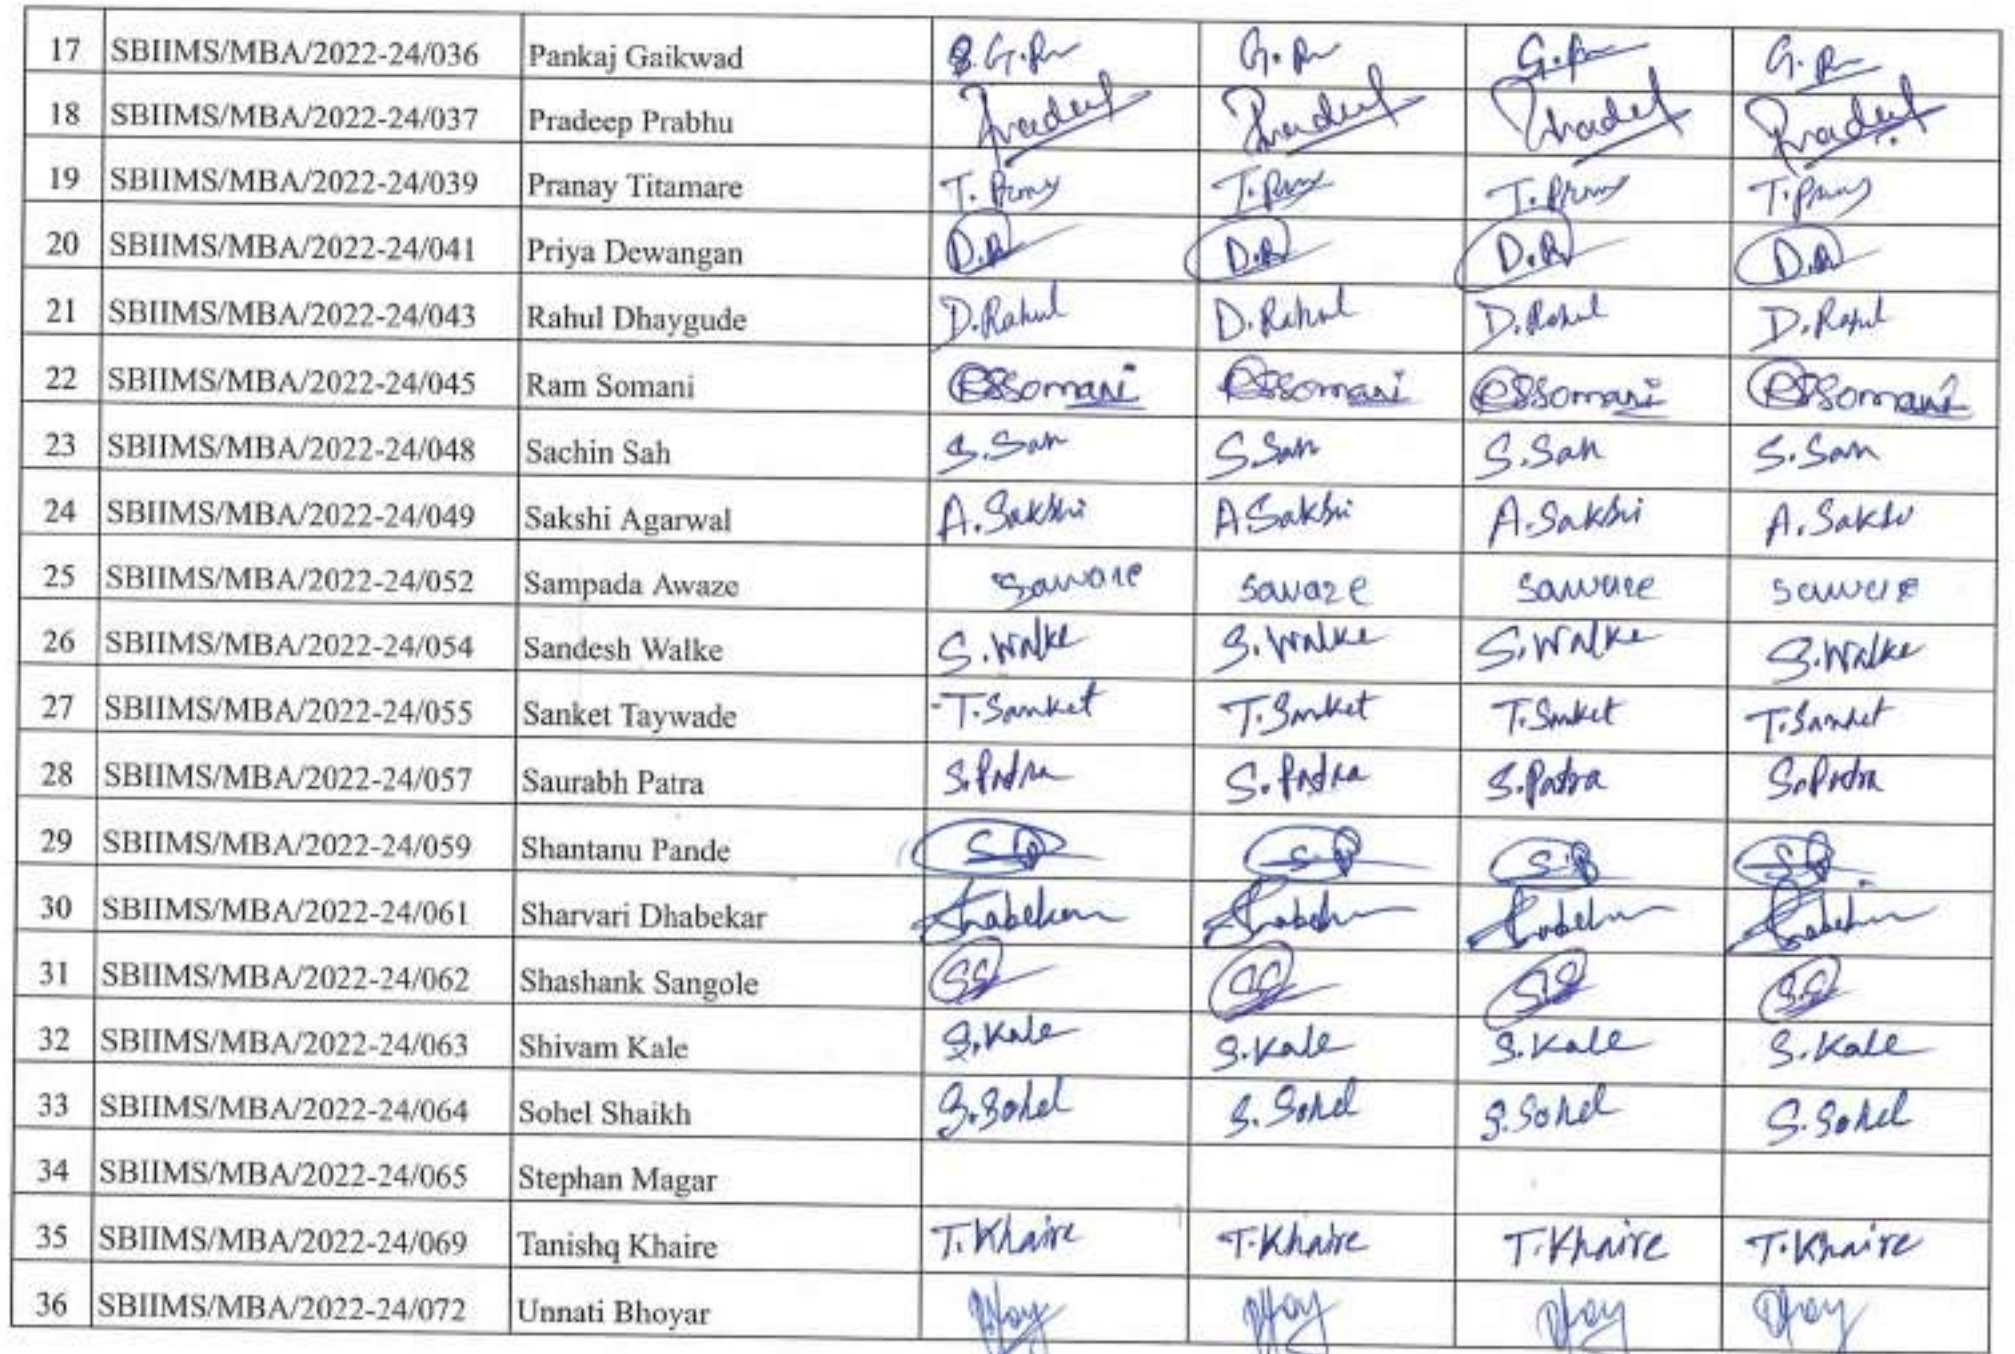 17 SBIIMS/MBA/2022-24/036 Pankaj Gaikwad
18 SBIIMS/MBA/2022-24/037 Pradeep Prabhu
19 SBIIMS/MBA/2022-24/039 Pranay Titamare
20 SBIIMS/MBA/2022-24/041 Priya Dewangan
21 SBIIMS/MBA/2022-24/043 Rahul Dhaygude D.Rahul D.Rahul D.Rahul D.Rahul
22 SBIIMS/MBA/2022-24/045 Ram Somani RSSomani RSSomani RSSomani RSSomani
23 SBIIMS/MBA/2022-24/048 Sachin Sah S.Sah S.Sah S.Sah S.Sah
24 SBIIMS/MBA/2022-24/049 Sakshi Agarwal A.Sakshi A.Sakshi A.Sakshi A.Sakshi
25 SBIIMS/MBA/2022-24/052 Sampada Awaze sawaze sawaze sawaze sawaze
26 SBIIMS/MBA/2022-24/054 Sandesh Walke S.Walke S.Walke S.Walke S.Walke
27 SBIIMS/MBA/2022-24/055 Sanket Taywade T.Sanket T.Sanket T.Sanket T.Sanket
28 SBIIMS/MBA/2022-24/057 Saurabh Patra S.Patra S.Patra S.Patra S.Patra
29 SBIIMS/MBA/2022-24/059 Shantanu Pande
30 SBIIMS/MBA/2022-24/061 Sharvari Dhabekar
31 SBIIMS/MBA/2022-24/062 Shashank Sangole
32 SBIIMS/MBA/2022-24/063 Shivam Kale S.Kale S.Kale S.Kale S.Kale
33 SBIIMS/MBA/2022-24/064 Sohel Shaikh S.Sohel S.Sohel S.Sohel S.Sohel
34 SBIIMS/MBA/2022-24/065 Stephan Magar
35 SBIIMS/MBA/2022-24/069 Tanishq Khaire T.Khaire T.Khaire T.Khaire T.Khaire
36 SBIIMS/MBA/2022-24/072 Unnati Bhoyar